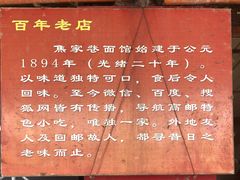 百年老店
焦家巷面馆始建于公元
1894年（光绪二十年）。
以味道独特可口，食后令人
回味。至今微信、百度、搜
狐网皆有传播，导航高邮特
色小吃，唯独一家。外地友
人及回邮故人，都寻昔日之
老味而止。